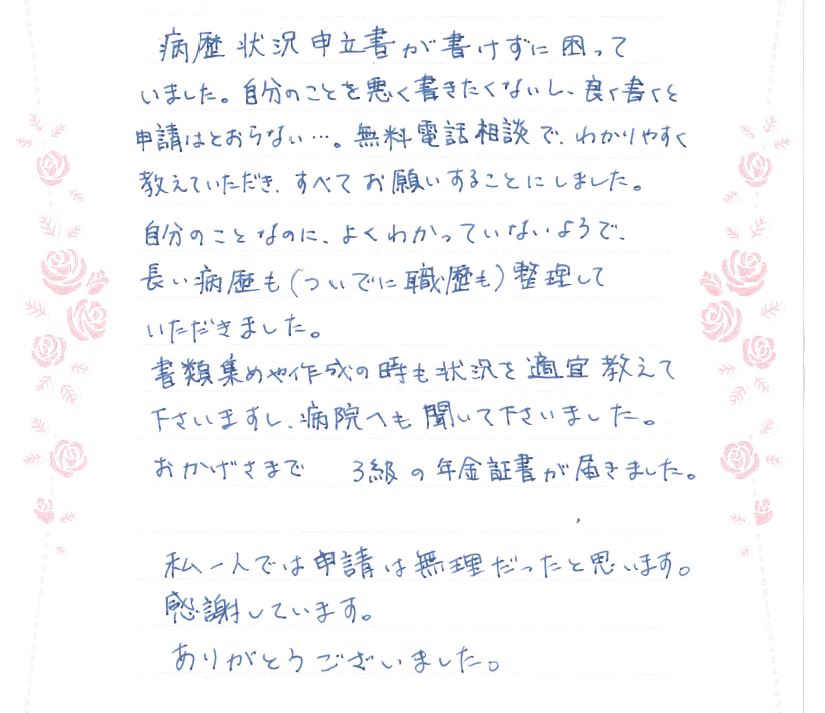 病歴状況申立書が書けずに困って
いました。自分のことを悪く書きたくないし、良く書くと
申請はとおらない…。無料電話相談で、わかりやすく
教えていただき、すべてお願いすることにしました。
自分のことなのに、よくわかっていないようで、
長い病歴も(ついでに職歴も)整理して
いただきました。
書類集めや作成の時も状況を適宜教えて
下さいますし、病院へも聞いて下さいました。
おかげさまで 3級の年金証書が届きました。
私一人では申請は無理だったと思います。
感謝しています。
ありがとうございました。